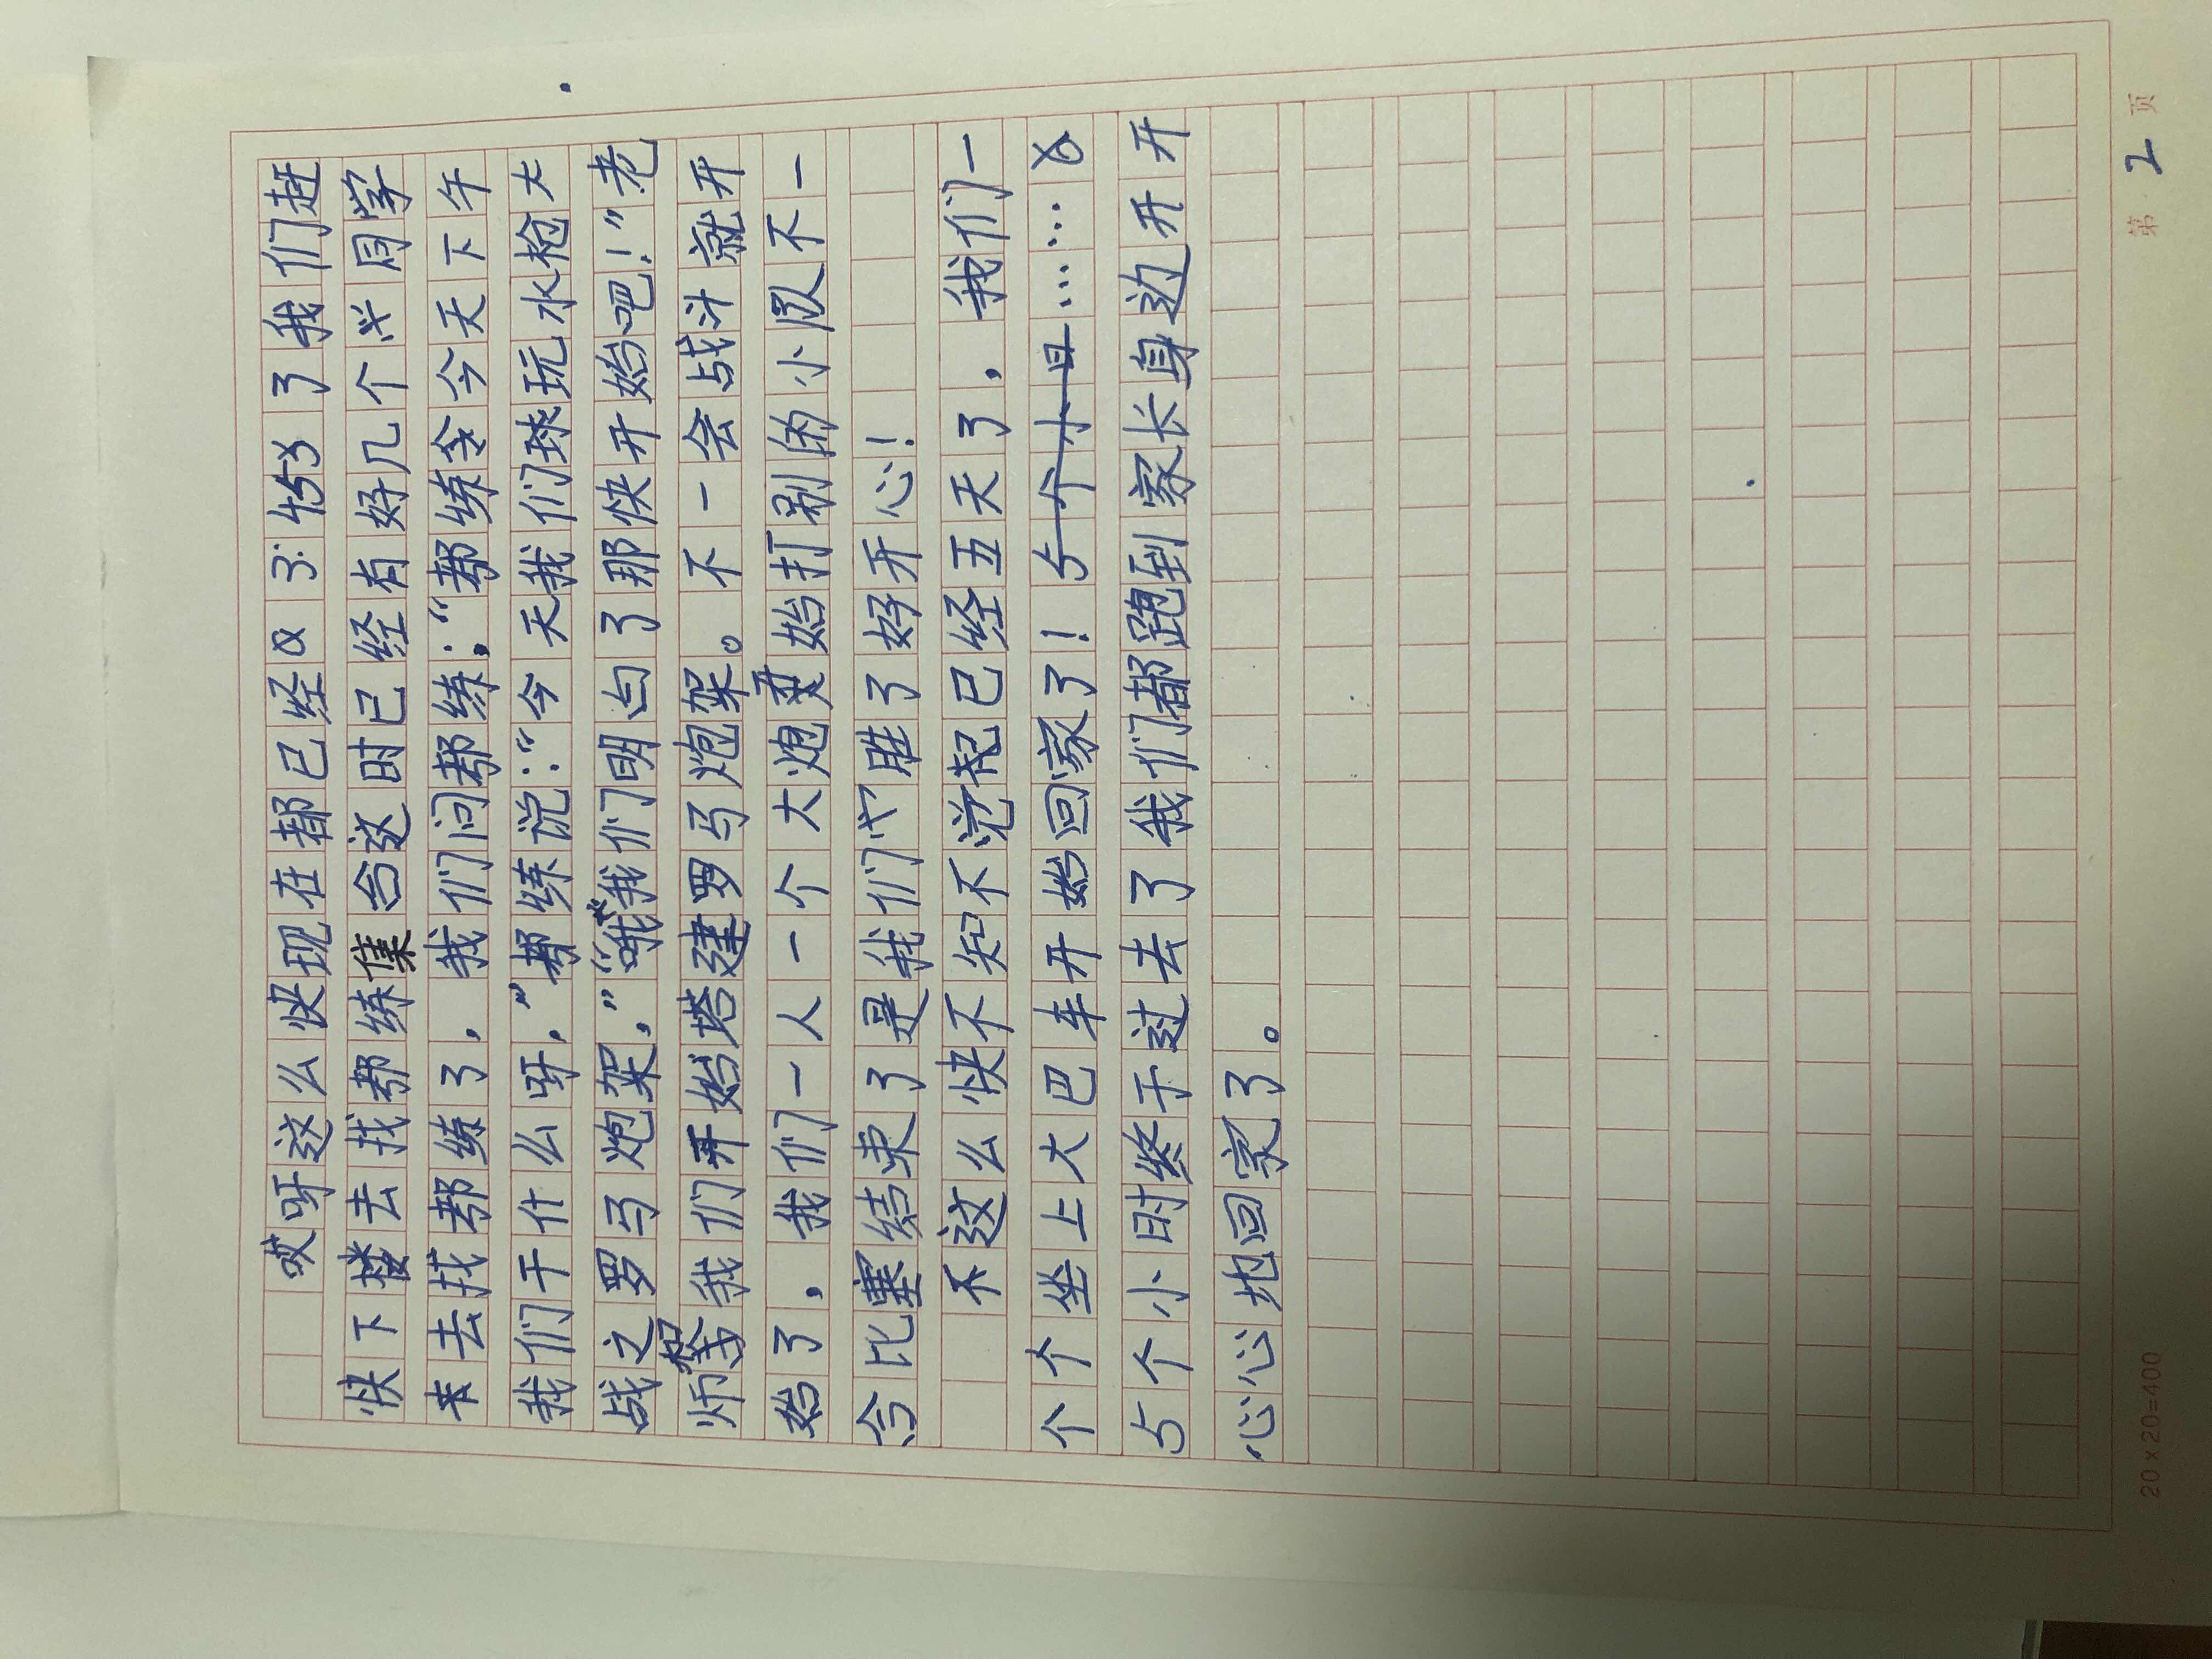 哎呀这么快现在都已经3:45了我们赶
快下楼去找帮练集合这时已经有好几个同学
去找帮练了，我们问帮练：“帮练今天下午
我们干什么呀，”帮练说：“今天我们玩水枪大
战之罗马炮架，”“哦我们明白了那快开始吧！”老
师和我们开始搭建罗马炮架。不一会战斗就开
始了，我们一人一个大炮开始打别的小队不一
会比塞结束了是我们胜了好开心！
不这么快不知不觉已经五天了，我们一
个个坐上大巴车开始回家了！……
5个小时终于过去了我们都跑到家长身边开开
心心地回家了。
第 2 页
20×20=400